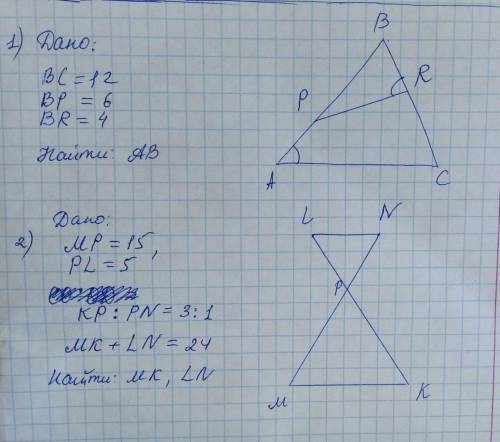 1) Дано:
BC = 12
BP = 6
BR = 4
Найти: AB
B
R
P
A
C
Дано:
2)
MP = 15,
PL = 5
KP : PN = 3 : 1
MK + LN = 24
Найти: MK, LN
L
N
P
M
K